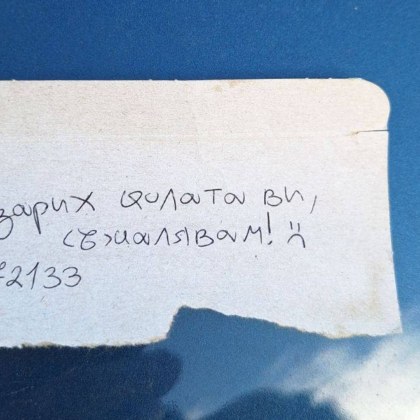 зарих колата ви,
съжалявам! :(
2133